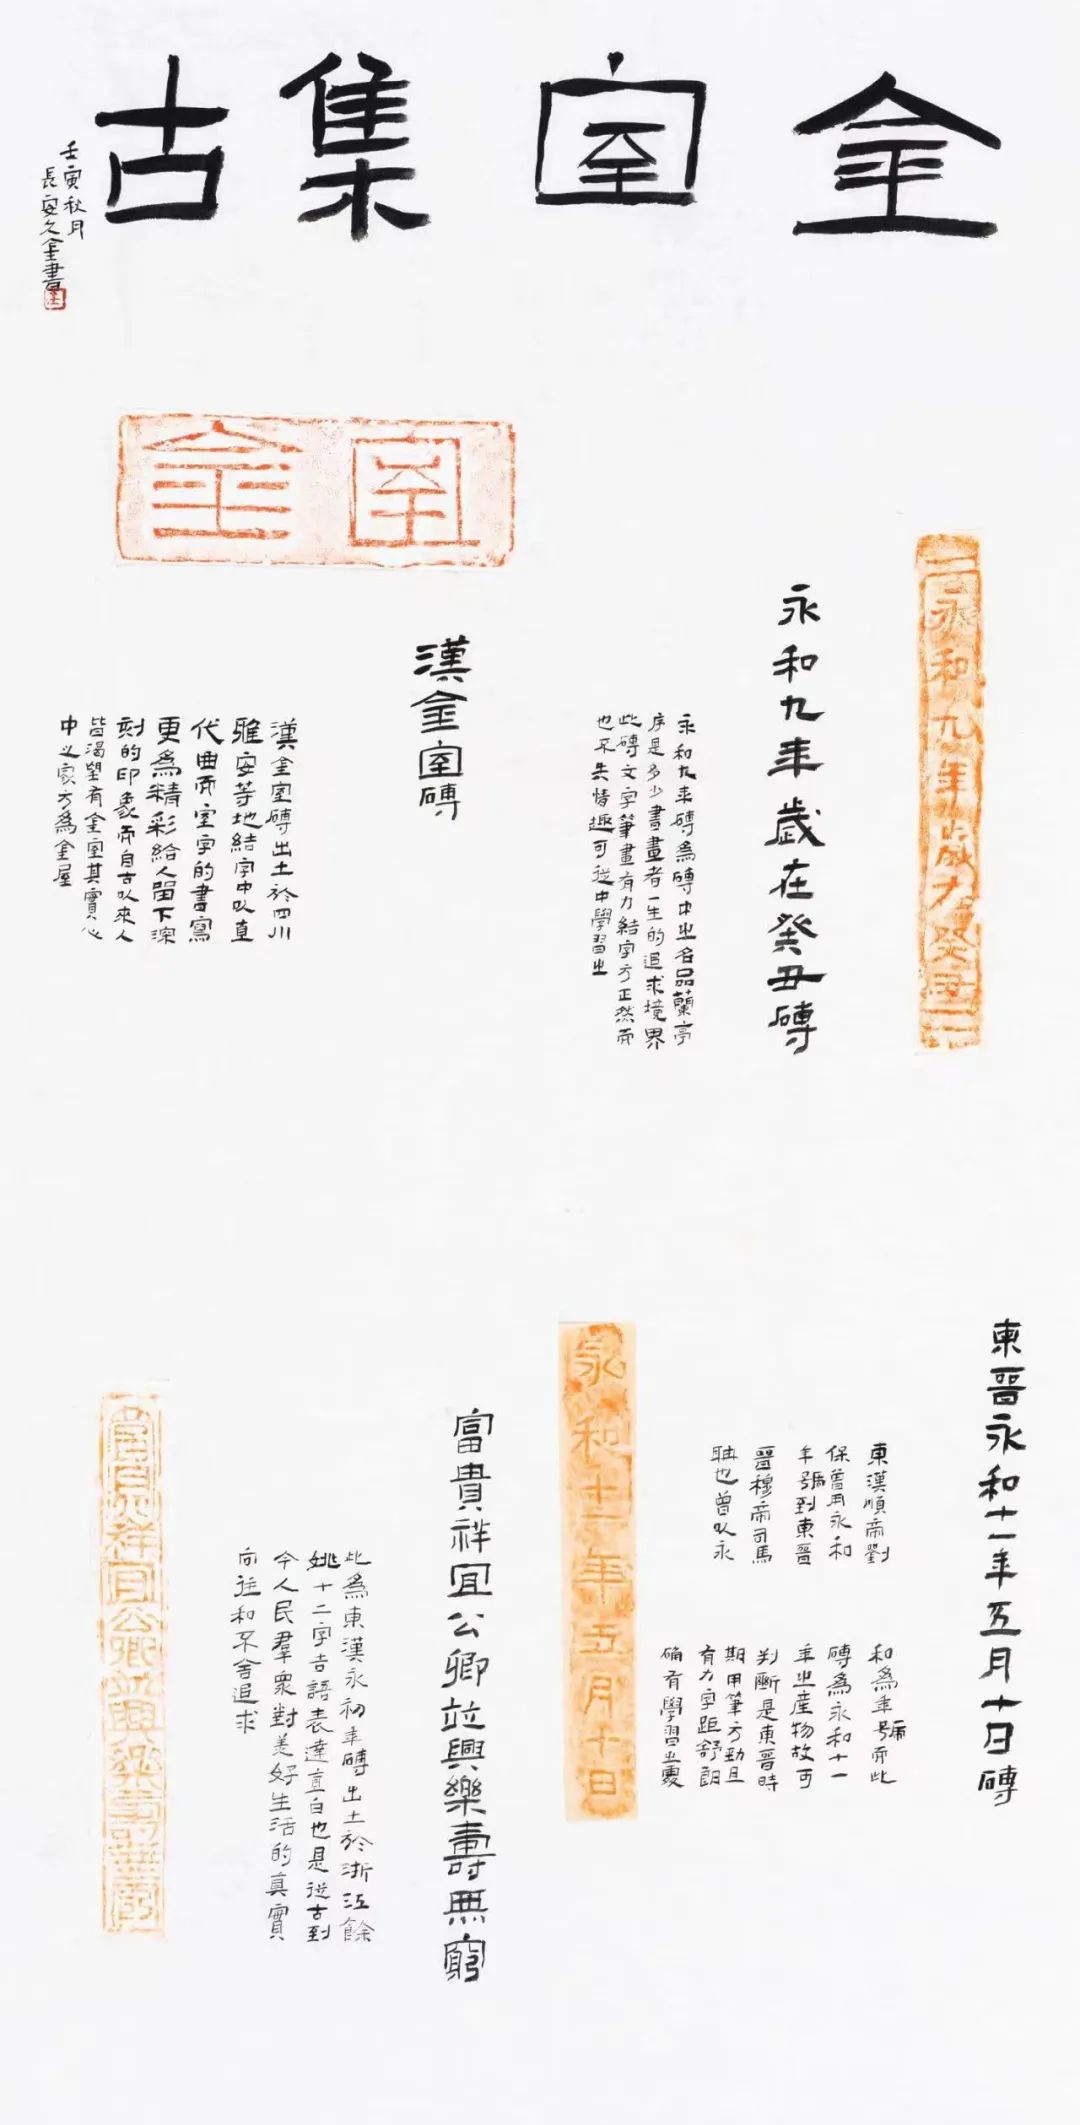 金室集古
壬寅秋月
長安久金書
室金
漢金室磚
漢金室磚出土於四川
雅安等地結字中以直
代曲而室字的書寫
更為精彩給人留下深
刻的印象而自古以來人
皆渴望有金室其實心
中之家方為金屋
永和九年歲在癸丑
永和九年歲在癸丑磚
永和九年磚為磚中之名品蘭亭
序是多少書畫者一生的追求境界
此磚文字筆畫有力結字方正然而
也不失情趣可從中學習之
東晉永和十一年五月十日磚
東漢順帝劉
保曾用永和
年號到東晉
晉穆帝司馬
聃也曾以永
和為年號而此
磚為永和十一
年之產物故可
判斷是東晉時
期用筆方勁且
有力字距舒朗
确有學習之處
永和十一年五月十日
富貴祥宜公卿並興樂壽無窮
此為東漢永初年磚出土於浙江餘
姚十二字吉語表達直白也是從古到
今人民羣眾對美好生活的真實
向往和不舍追求
富貴祥宜公卿並興樂壽無窮